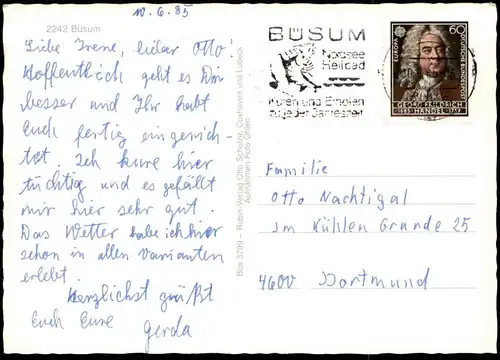 10.6.85
2242 Büsum
Liebe Irene, lieber Otto!
Hoffentlich geht es Dir
besser und Ihr habt
Euch fertig eingerich-
tet. Ich kure hier
tüchtig und es gefällt
mir hier sehr gut.
Das Wetter habe ich hier
schon in allen Varianten
erlebt.
Herzlichst grüßt
Euch Eure
Gerda
Büs 3799 – Ruten-Verlag Otto Schulze, Cuxhaven und Lübeck
Aufnahmen Foto
BÜSUM
Nordsee
Heilbad
Kuren und Erholen
zu jeder Jahreszeit
EUROPA
60
DEUTSCHE BUNDESPOST
GEORG FRIEDRICH
1685 HÄNDEL 1759
Familie
Otto Nachtigal
Im Kühlen Grunde 25
4600 Dortmund